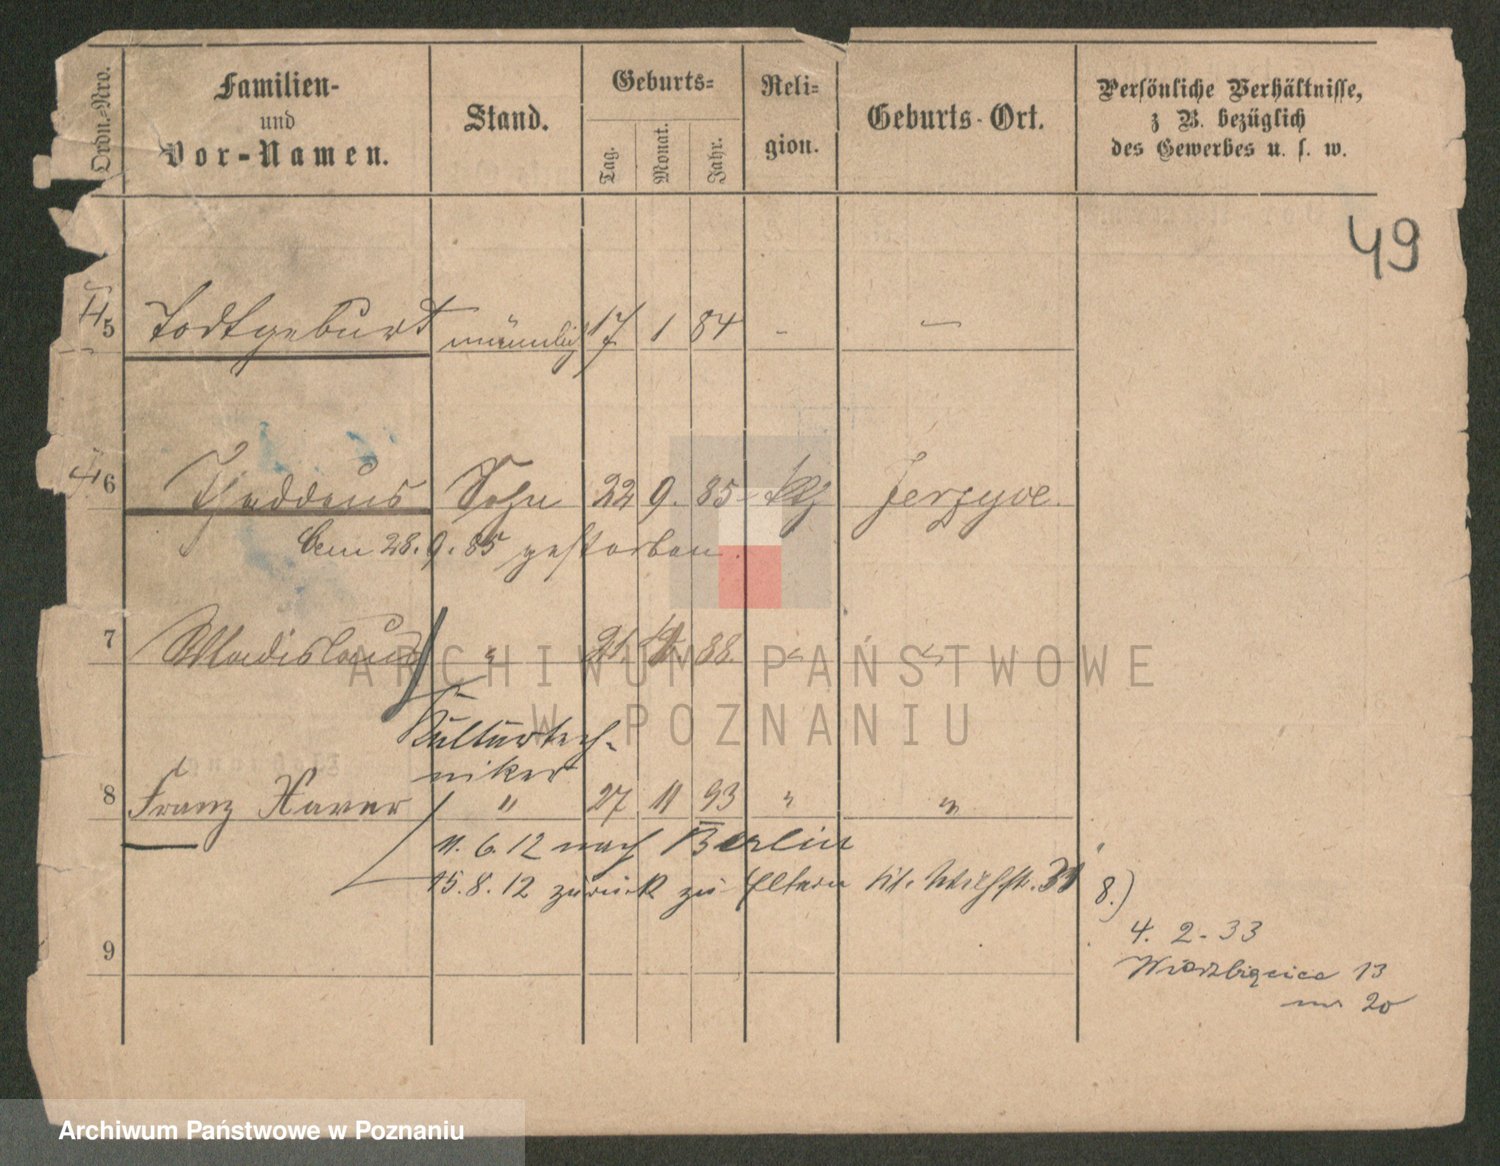 Ordn.-Nro.
Familien-
und
Vor-Namen.
Stand.
Geburts-
Tag.
Monat.
Jahr.
Reli-
gion.
Geburts-Ort.
Persönliche Verhältnisse,
z B. bezüglich
des Gewerbes u. s. w.
49
5 Todtgeburt männlich 17 1 84 - -
6 Thaddeus Sohn 22 9. 85 kth Jerzyce.
Am 28.9.85 gestorben.
7 Wladislaus " 25. 88. " "
Kulturtech-
niker
8 Franz Xaver " 27 11 93 " "
11.6.12 nach Berlin
15.8.12 zurück zu Eltern 31
8.)
4. 2 - 33
Wierzbięcice 13
m 20
9
ARCHIWUM PAŃSTWOWE
W POZNANIU
Archiwum Państwowe w Poznaniu